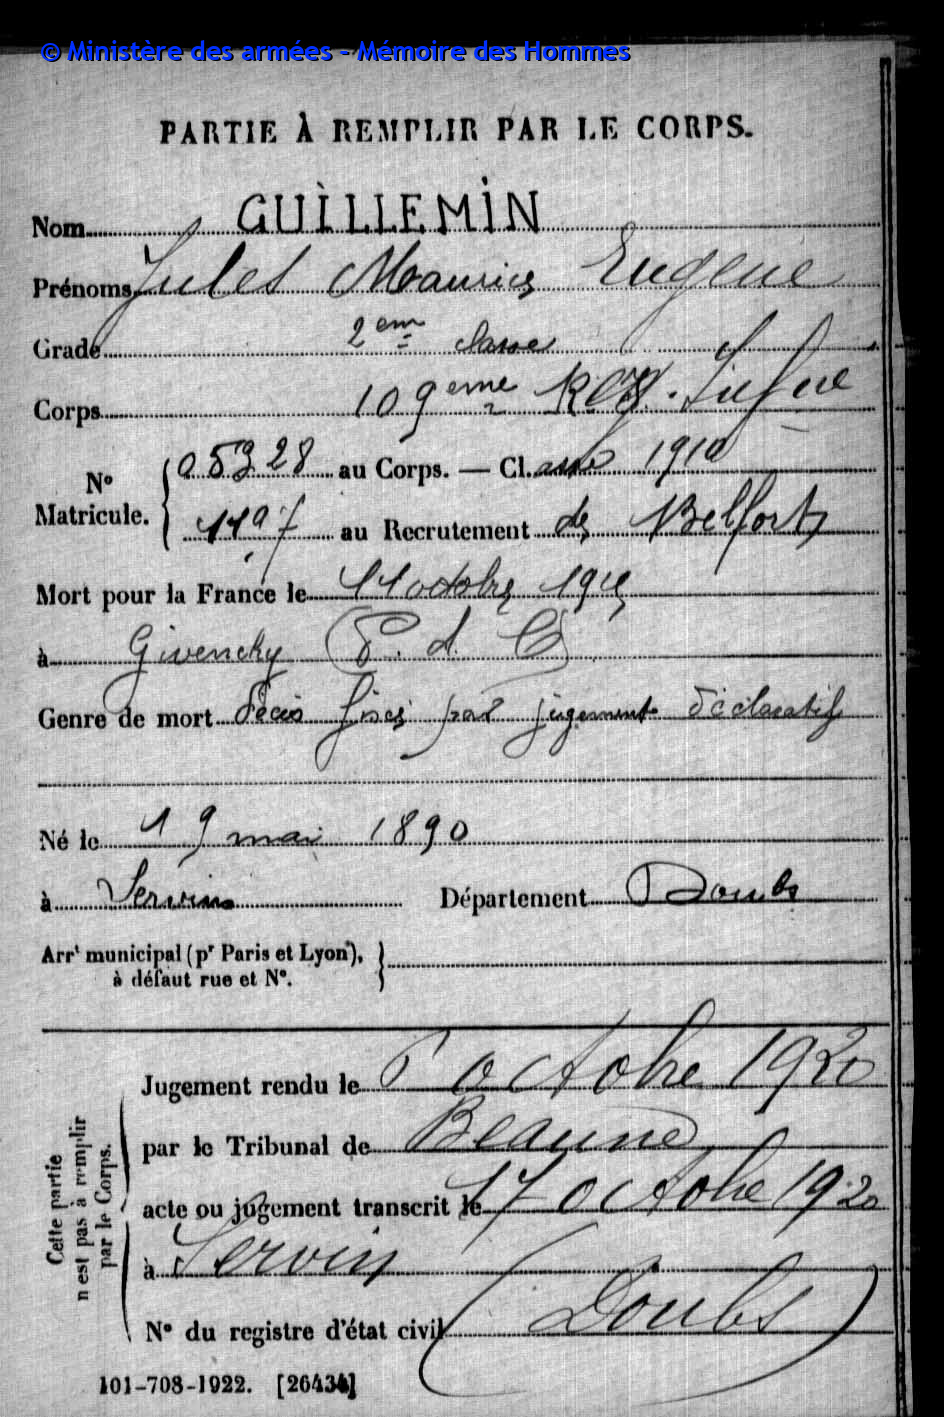 © Ministère des armées - Mémoire des Hommes
PARTIE À REMPLIR PAR LE CORPS.
Nom GUILLEMIN
Prénoms Jules Maurice Eugène
Grade 2eme classe
Corps 109eme Rég. d'Inf
N° Matricule. 05328 au Corps. — Cl. 1910
au Recrutement de Belfort
Mort pour la France le 11 octobre
à Givenchy (P. d. C)
Genre de mort décès fixé par jugement déclaratif
Né le 19 mai 1890
à Servin Département Doubs
Arrt municipal (pr Paris et Lyon),
à défaut rue et N°.
Cette partie
n'est pas à remplir
par le Corps.
Jugement rendu le octobre 1920
par le Tribunal de Beaune
acte ou jugement transcrit le 17 octobre 1920
à Servin
N° du registre d'état civil (Doubs)
101-708-1922. [26434]